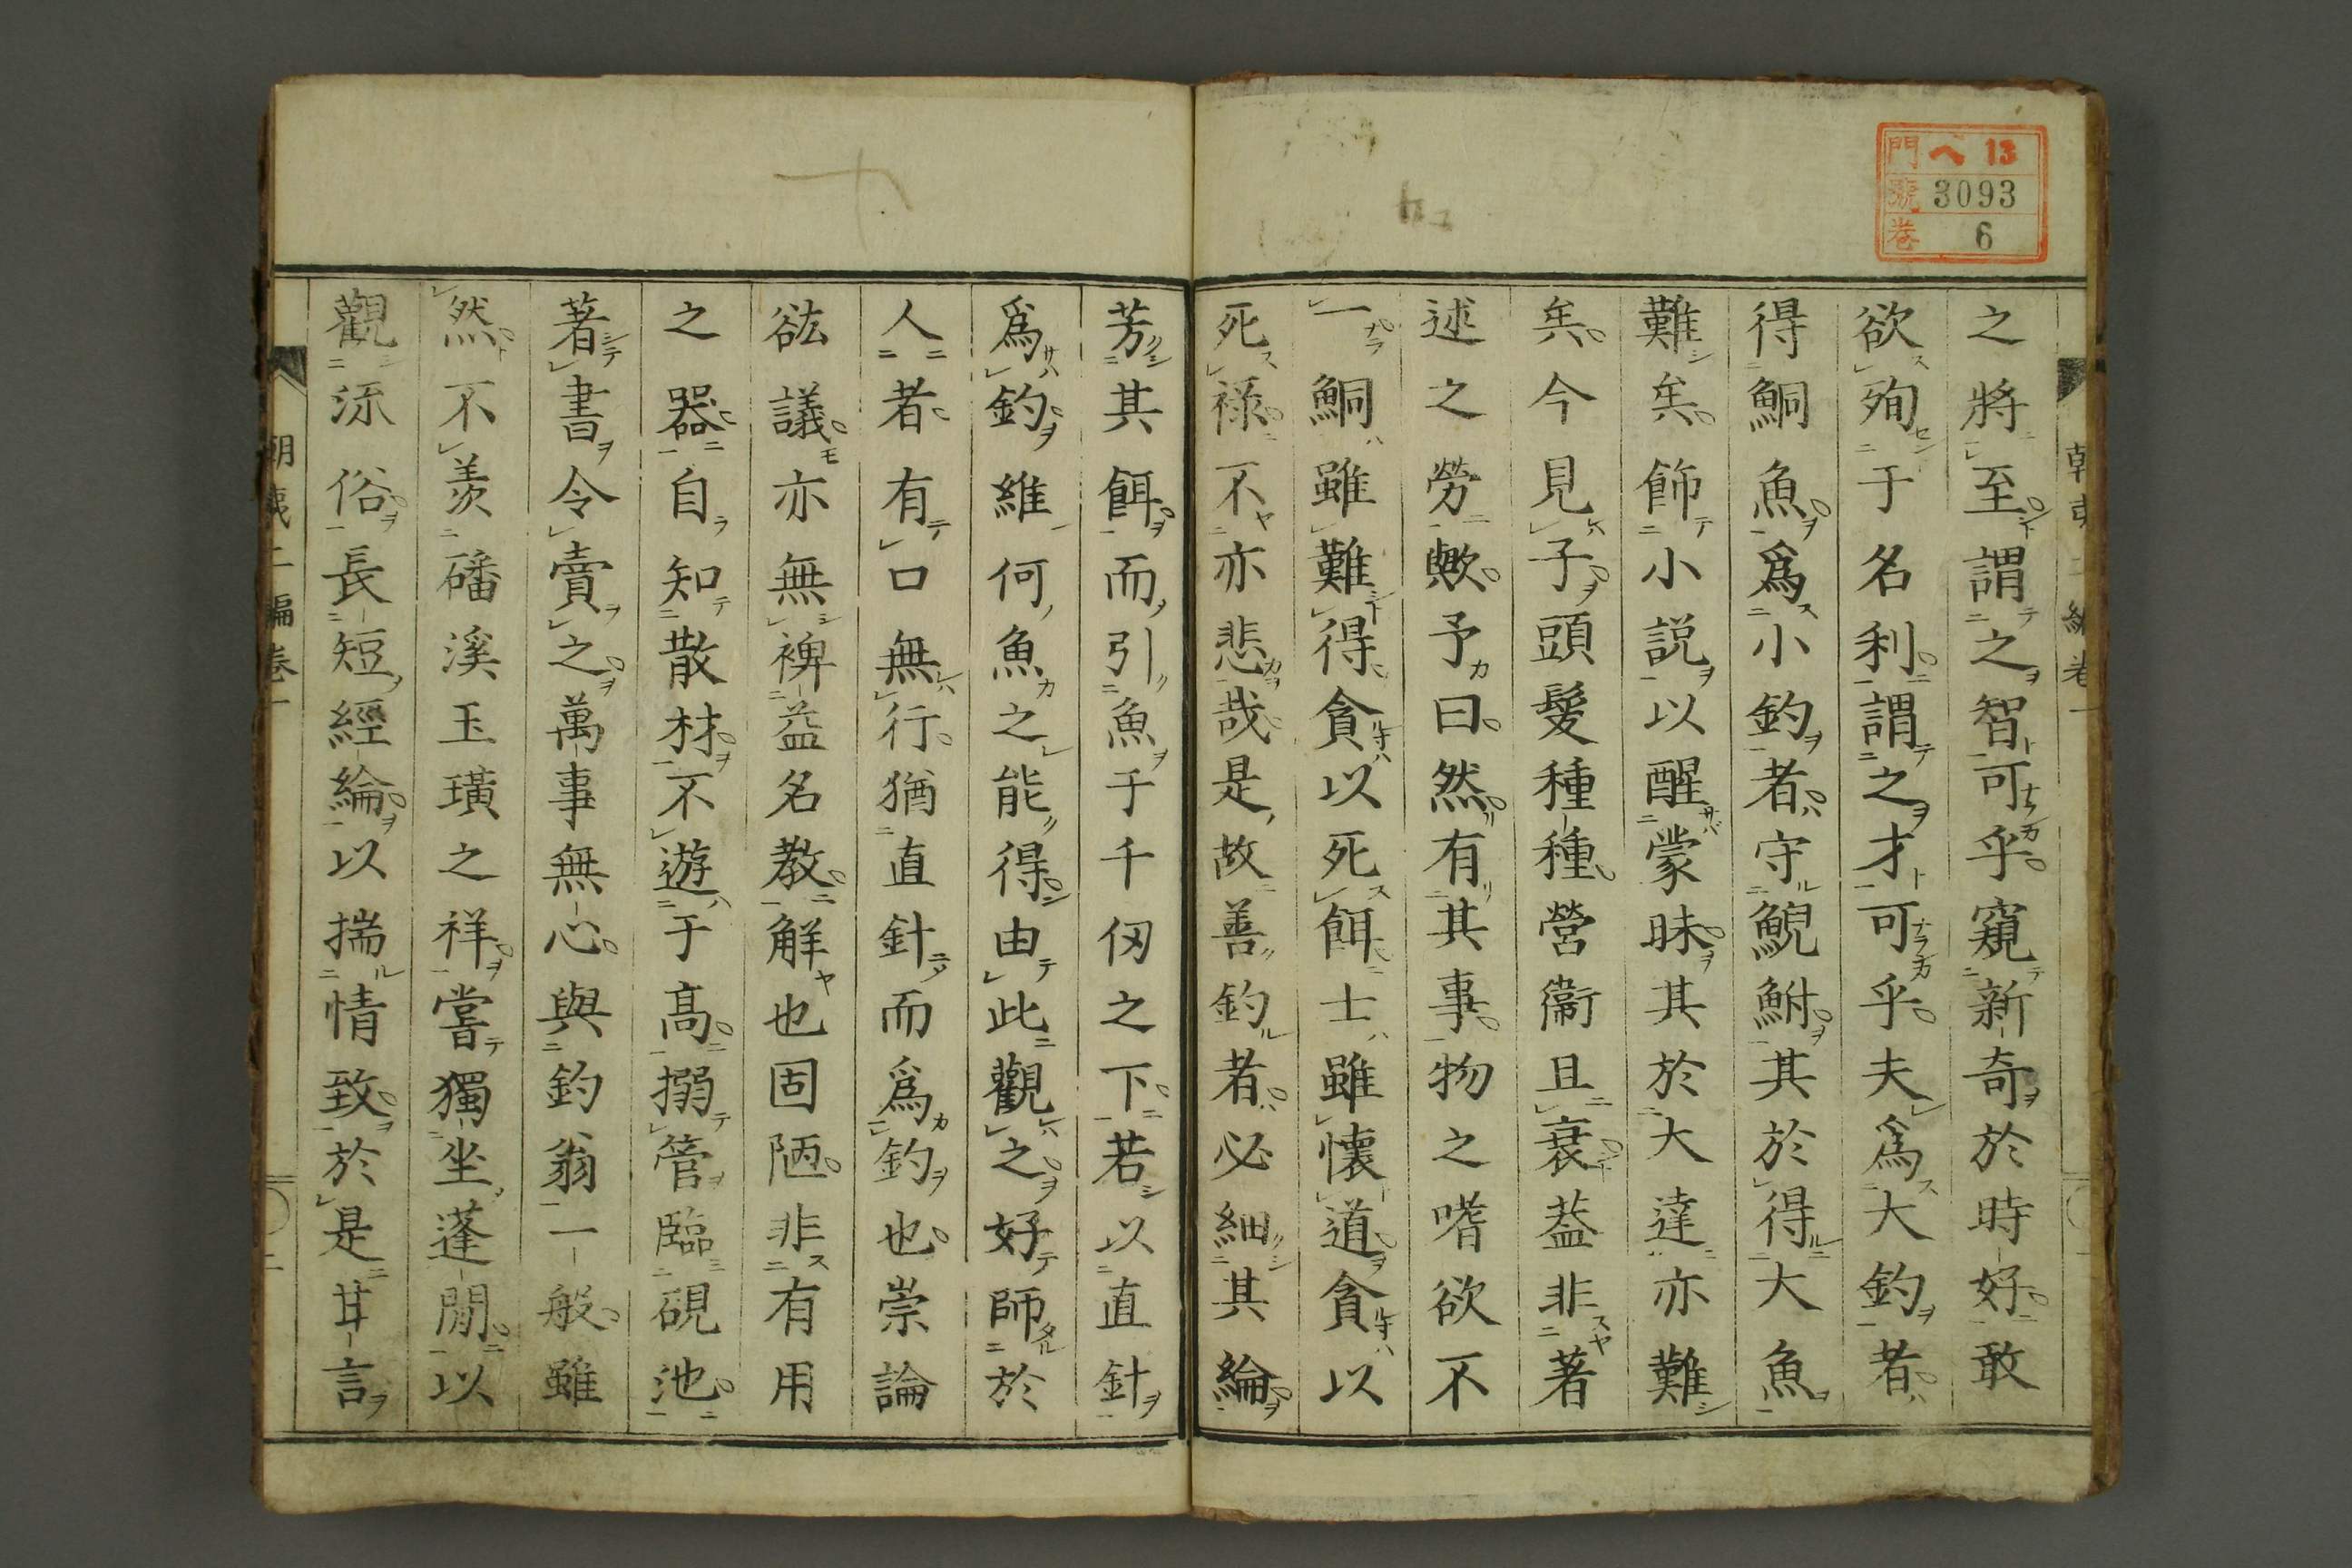 門 へ 13
號 3093
卷 6
之將至謂之智可乎窺新奇於時好敢
欲殉于名利謂之才可乎夫爲大釣者
得鮦魚爲小釣者守鯢鮒其於得大魚
難矣飾小説以醒蒙昧其於大達亦難
矣今見子頭髮種種營衞且衰葢非著
述之勞歟予曰然有其事物之嗜欲不
一鮦雖難得貪以死餌士雖懷道貪以
死祿不亦悲哉是故善釣者必細其綸
芳其餌而引魚于千仭之下若以直針
爲釣維何魚之能得由此觀之好師於
人者有口無行猶直針而爲釣也崇論
谹議亦無裨益名教解也固陋非有用
之器自知散材不遊于高搦管臨硯池
著書令賣之萬事無心與釣翁一般雖
然不羨磻溪玉璜之祥嘗獨坐蓬閒以
觀流俗長短經綸以揣情致於是甘言
二編卷一